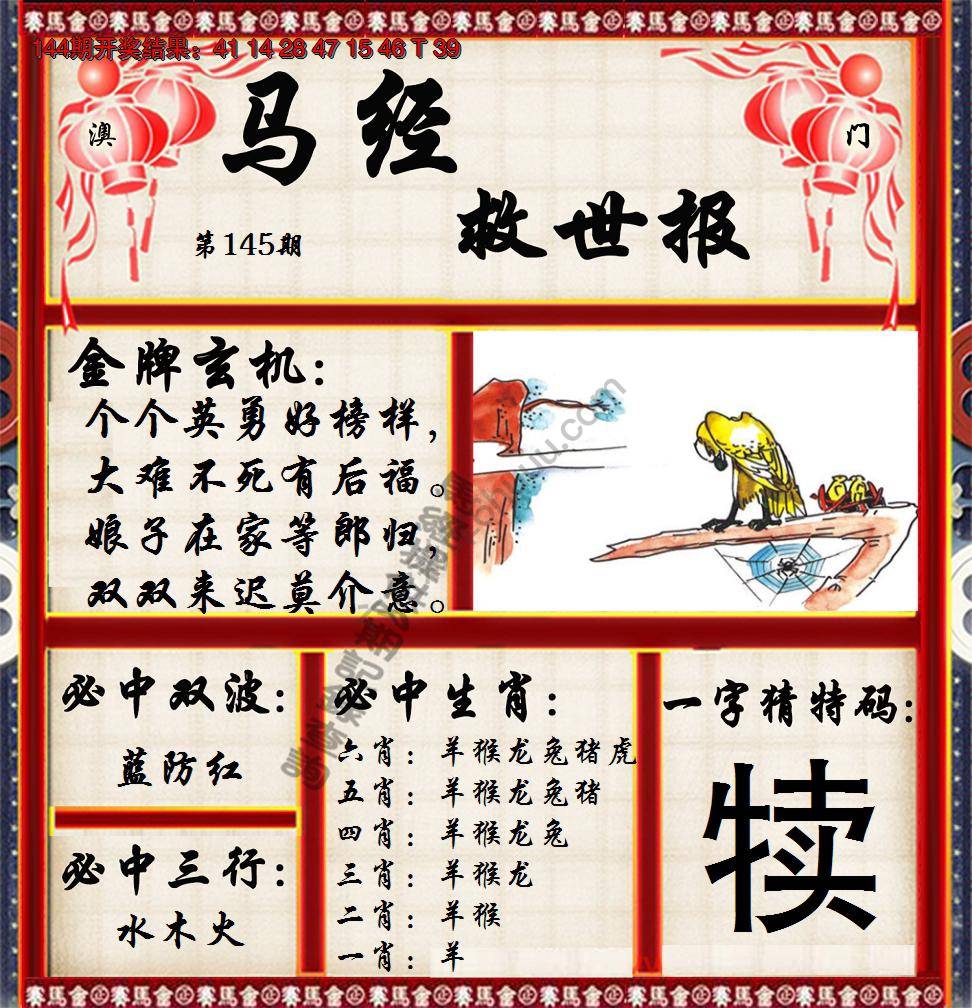 賽馬會賽馬會賽馬會賽馬會賽馬會賽馬會賽馬會賽馬會
144期开奖结果：41 14 28 47 15 46 T 39
澳 门
马经
救世报
第145期
金牌玄机：
个个英勇好榜样，
大难不死有后福。
娘子在家等郎归，
双双来迟莫介意。
必中双波：
蓝防红
必中三行：
水木火
必中生肖：
六肖：羊猴龙兔猪虎
五肖：羊猴龙兔猪
四肖：羊猴龙兔
三肖：羊猴龙
二肖：羊猴
一肖：羊
一字猜特码：
犊